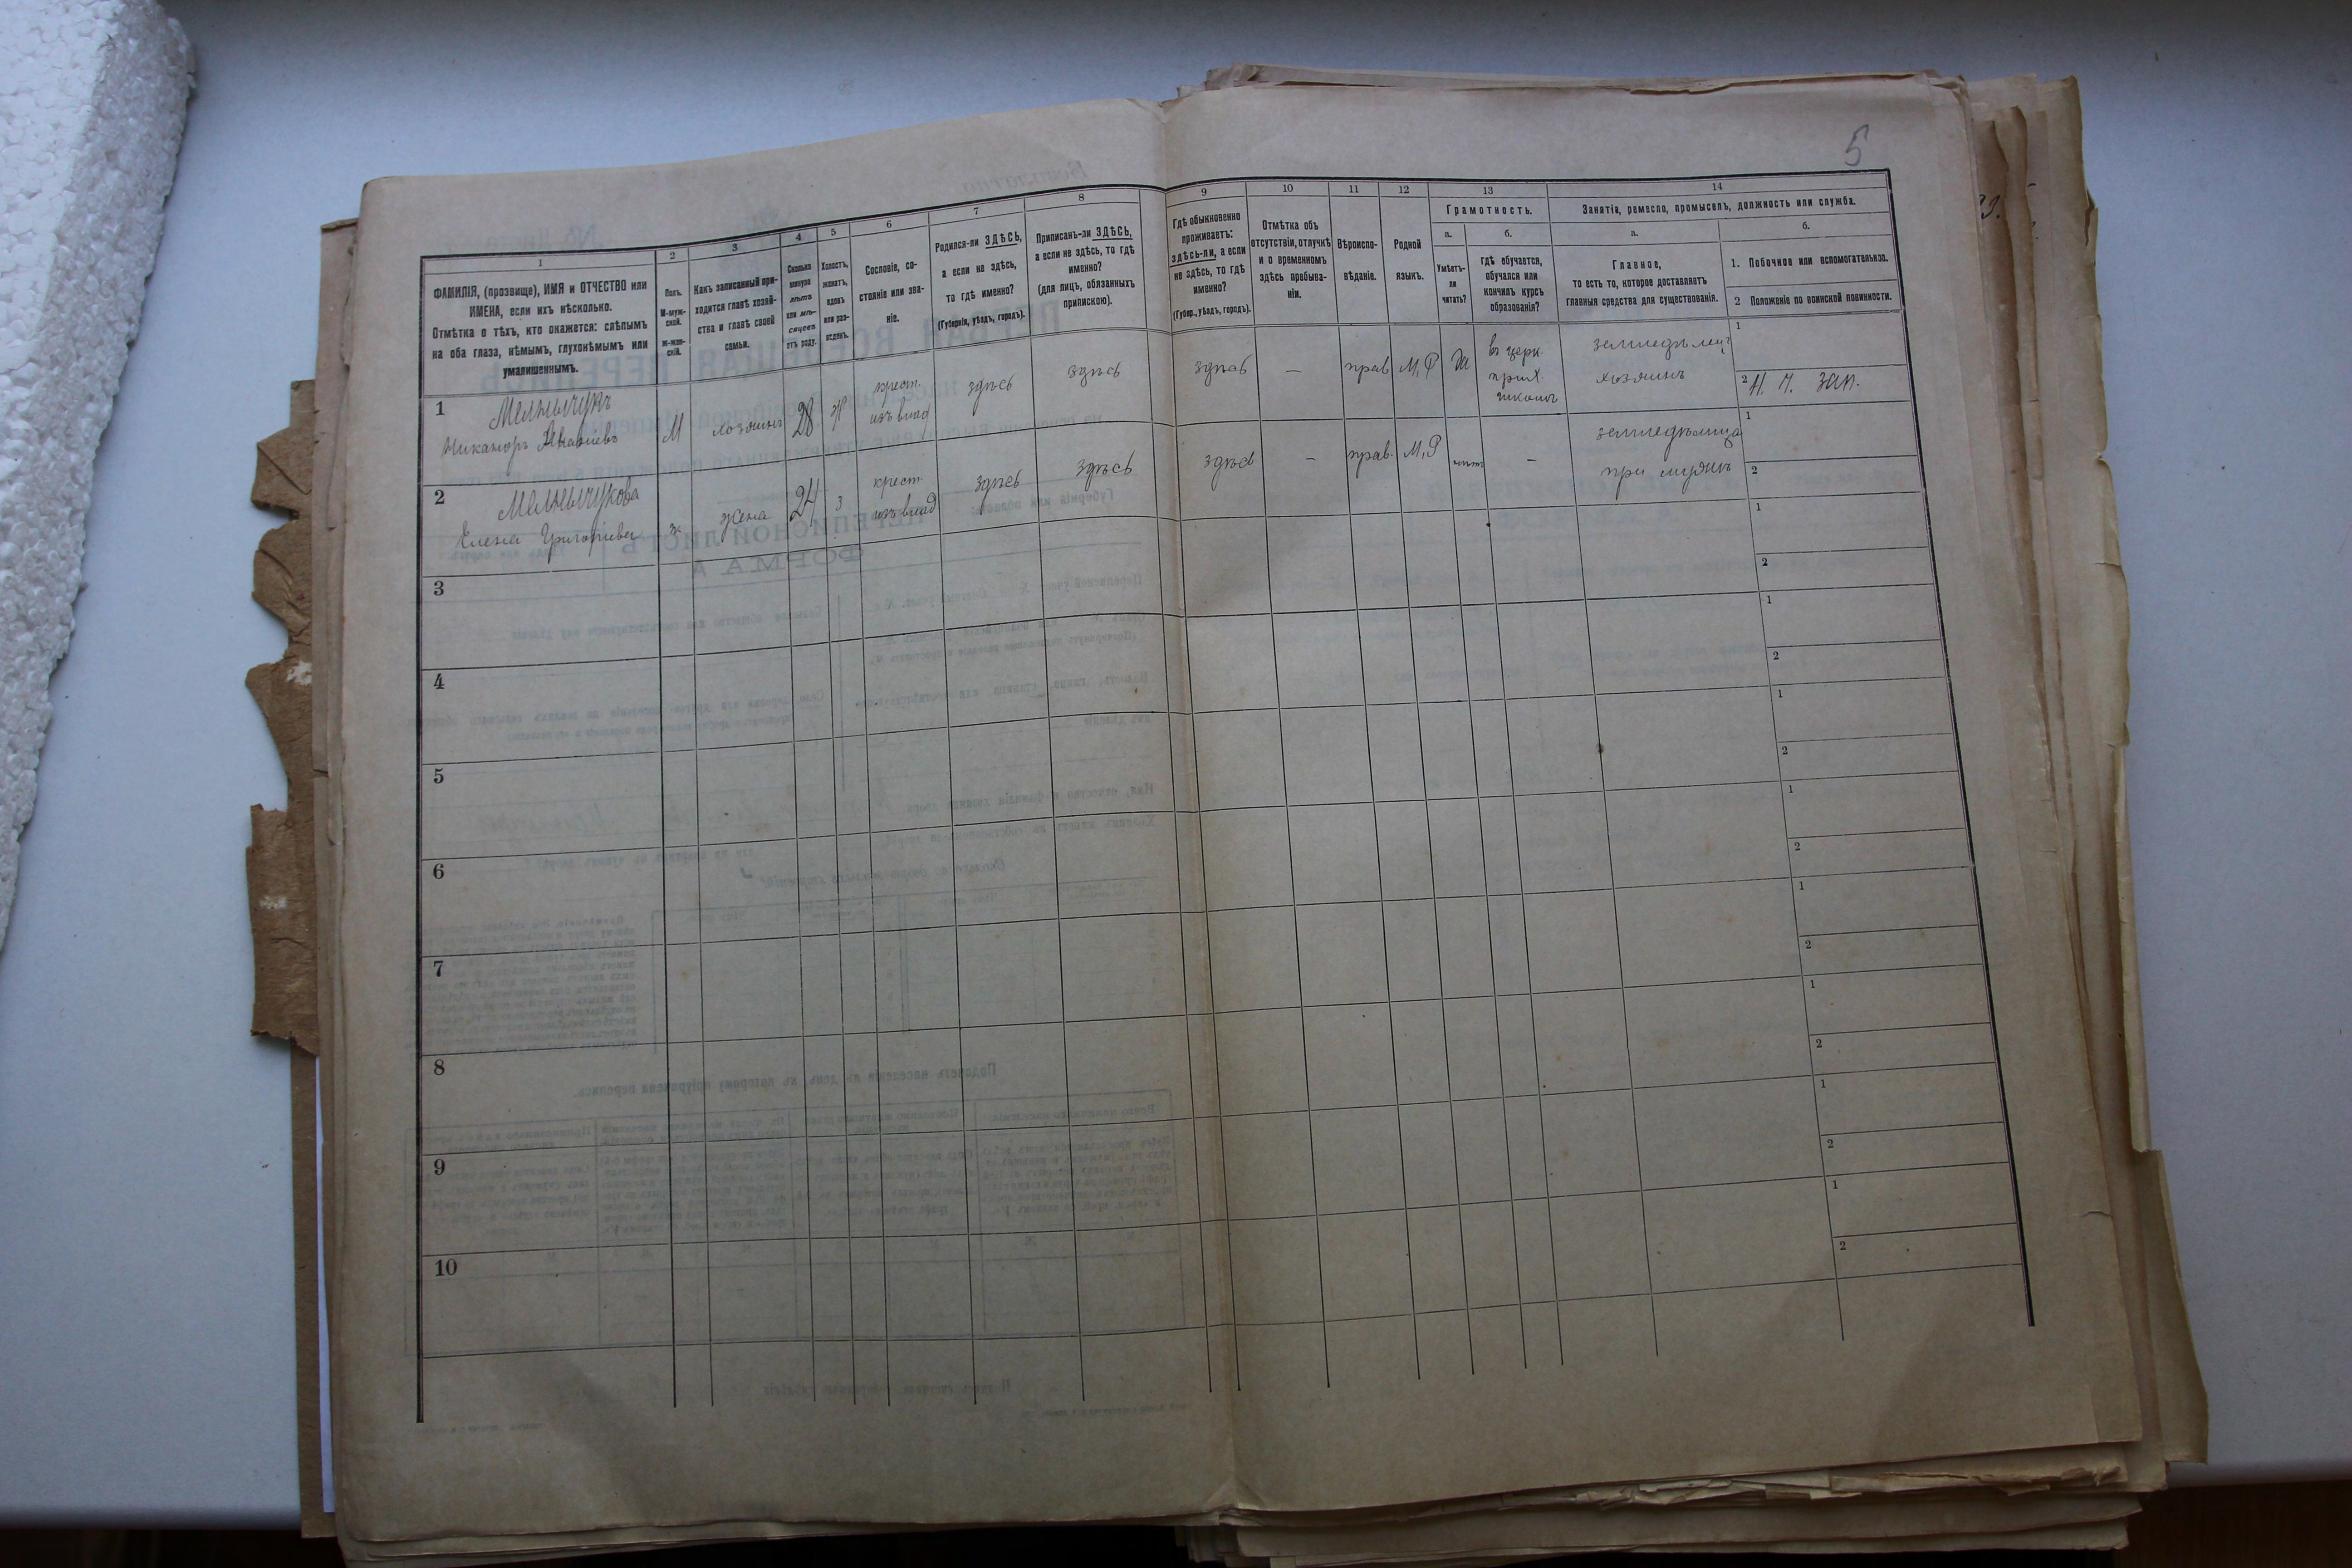 5
1
ФАМИЛІЯ, (прозвище), ИМЯ и ОТЧЕСТВО или
ИМЕНА, если ихъ нѣсколько.
Отмѣтка о тѣхъ, кто окажется: слѣпымъ
на оба глаза, нѣмымъ, глухонѣмымъ или
умалишеннымъ.
2
Полъ.
М-муж-
ской.
ж-жен-
скій.
3
Какъ записанный при-
ходится главѣ хозяй-
ства и главѣ своей
семьи.
4
Сколько
минуло
лѣтъ
или мѣ-
сяцевъ
отъ роду.
5
Холостъ,
женатъ,
вдовъ
или раз-
веденъ.
6
Сословіе, со-
стояніе или зва-
ніе.
7
Родился-ли ЗДѢСЬ,
а если не здѣсь,
то гдѣ именно?
(Губернія, уѣздъ, городъ).
8
Приписанъ-ли ЗДѢСЬ,
а если не здѣсь, то гдѣ
именно?
(для лицъ, обязанныхъ
припискою).
9
Гдѣ обыкновенно
проживаетъ:
здѣсь-ли, а если
не здѣсь, то гдѣ
именно?
(Губер., уѣздъ, городъ).
10
Отмѣтка объ
отсутствіи, отлучкѣ
и о временномъ
здѣсь пребыва-
ніи.
11
Вѣроиспо-
вѣданіе.
12
Родной
языкъ.
13
Грамотность.
а.
Умѣетъ-
ли
читать?
б.
гдѣ обучается,
обучался или
кончилъ курсъ
образованія?
14
Занятіе, ремесло, промыселъ, должность или служба.
а.
Главное,
то есть то, которое доставляетъ
главныя средства для существованія.
б.
1. Побочное или вспомогательное.
2 Положеніе по воинской повинности.
1
Мельничукъ
Никаноръ
М
хозяинъ
28
ж
крест.
изъ влад
здѣсь
здѣсь
здѣсь
—
прав
М, Р
да
въ церк.
прих.
школѣ
земледѣлец
хозяинъ
1
2 Н. Ч. зап.
2
Мельничукова
Елена Григориева
ж
жена
24
з
крест.
изъ влад
здѣсь
здѣсь
здѣсь
—
прав.
М, Р
нѣт
—
земледѣлица
при мужѣ
1
2
3
1
2
4
1
2
5
1
2
6
1
2
7
1
2
8
1
2
9
1
2
10
1
2